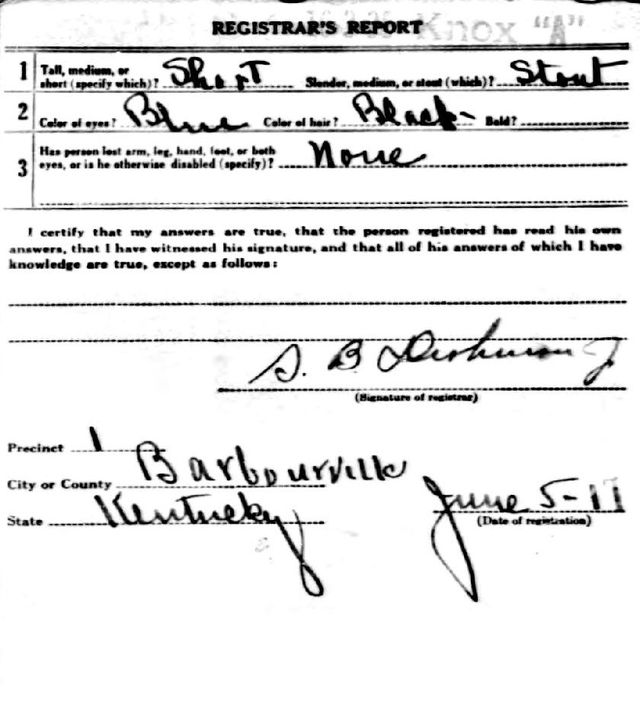 Knox "A"
REGISTRAR'S REPORT
1 Tall, medium, or short (specify which)? Short Slender, medium, or stout (which)? Stout
2 Color of eyes? Blue Color of hair? Black- Bald?
3 Has person lost arm, leg, hand, foot, or both eyes, or is he otherwise disabled (specify)? None
I certify that my answers are true, that the person registered has read his own
answers, that I have witnessed his signature, and that all of his answers of which I have
knowledge are true, except as follows:
S. B.
(Signature of registrar)
Precinct 1
City or County Barbourville
State Kentucky June 5-17
(Date of registration)